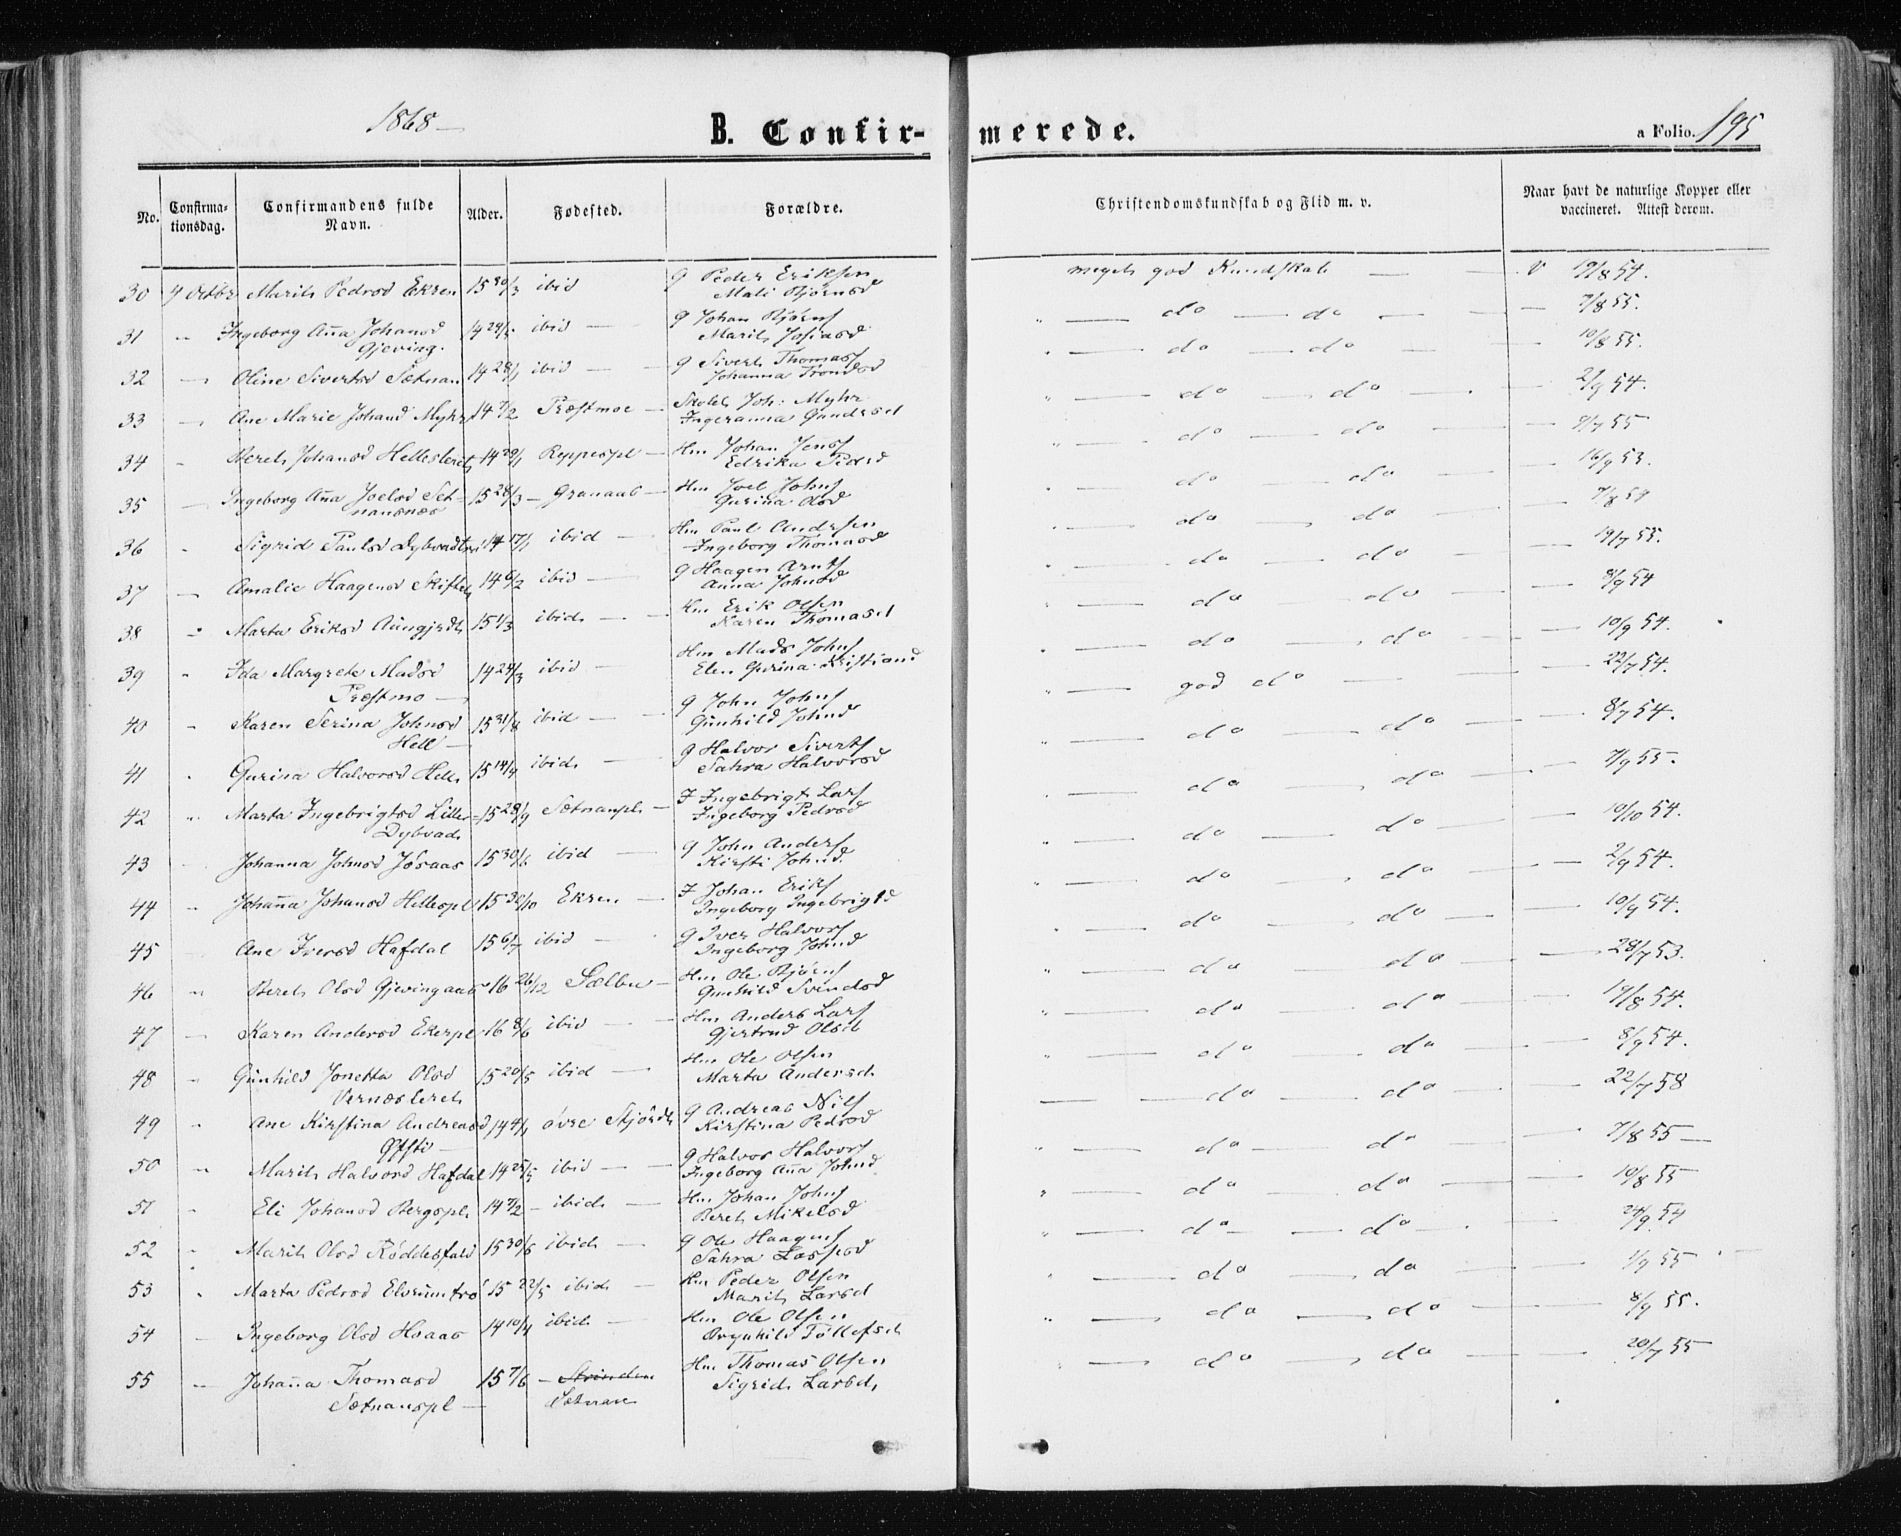 1868 —
B. Confir- merede.
a Folio. 195
No. Confirma- tionsdag. Confirmandens fulde Navn. Alder. Fødested. Forældre. Christendomskundskab og Flid m. v. Naar havt de naturlige Kopper eller vaccineret. Attest derom.
30 4 Octbr Marith Pedrsd Ekren 15 30/3 ibid G Peder Eriksen meget god Kundskab — — V 19/8 54.
Mali Bjørnsd
31 " Ingeborg Aña Johansd 14 29/5 ibid — G Johan Bjørns " — do — do — — 7/8 55.
Gjeving. Marith
32 — Oline Sivertsd Sætnan 14 28/1 ibid — G Sivert Thomass " — do — do — — 10/8 55.
Johanna Trondsd
33 — Ane Marie Johansd Myhr 14 7/2 Præstmoe — Skolel. Joh: Myhr " — do — do — 2/9 54.
Ingeranna Gundersd
34 " Mereth Johansd Hellesleret 14 29/1 Reppespl — Hm Johan Jens " — do — do — 9/7 55
Edrika Pedsd
35 — Ingeborg Aña Joelsd Set- 15 28/3 — Granaas — Hm Joel Johns " — do — do — 16/9 53.
nansnæs Gurina Olsd
36 " Sigrid Paulsd 14 17/1 ibid — Hm Paul Andrsen " — do — do — 7/8 54
Ingeborg Thomasd
37 — Amalie Haagensd Skifteh 14 6/2 ibid — G Haagen Arnts " — do — do — 19/7 55.
Anna Johnsd
38 " Marta Eriksd 15 1/3 ibid — Hm Erik Olsen " — do — do — 8/9 54
Karen Thomasd
39 " Ida Margrete Madsd 14 24/3 ibid — Hm Mads Johns " — do — do — 10/9 54.
Præstmo — Elen Gurina Kristiansd
40 " Karen Serina Johnsd 15 31/8 ibid — G John Johns " — god do — — 22/7 54.
Hell — Gunhild Johnsd
41 " Gurina Halvorsd Hell 15 14/9 ibid — G Halvor Siverts " — do — do — 8/7 54.
Sahra Halvorsd
42 " Marta Ingebrigtsd Lille- 15 28/9 Sætnanpl — F Ingebrigt Lars " — do — do — 7/9 55.
Dybvad Ingeborg Pedrsd
43 Johanna Johnsd Jøsaas 15 30/6 ibid — G John Anders " — do — do — 10/10 54.
Kirsti Johnsd
44 " Johaña Johansd Hellespl 15 30/10 Ekren — F Johan Eriks " — do — do — 2/9 54.
Ingeborg Ingebrigtsd
45 " Ane Iversd Hafdal 15 6/7 ibid — G Iver Halvors " — do — do — 10/9 54.
Ingeborg Johnsd
46 " Bereth Olsd Gjevingaas 16 26/12 Sælbu — Hm Ole Bjørns " — do — do — 28/7 53.
Gunhild Svendsd
47 — Karen Andersd Ekerpl 16 8/6 ibid — Hm Anders Lars " — do — do — 19/8 54.
Gjertrud Olsd
48 " Gunhild Jonetta Olsd 15 20/5 ibid — Hm Ole Olsen " — do — do — 8/9 54.
Vernæsleret Marta Andersd
49 " Ane Kirstina Andreasd 14 4/1 øvre Stjørd. G Andreas Nils — — do — do — 22/7 58
Kirstina Pedrsd
50 " Marith Halvorsd Hafdal 14 25/5 ibid — G Halvor Halvors " — do — do — 7/8 55 —
Ingeborg Aña Johnsd
51 " Eli Johansd Bergspl 14 7/2 — ibid — Hm Johan Johns " — do — do — 10/8 55
Bereth Mikelsd
52 " Marith Olsd Røddesfald 15 30/6 ibid — G Ole Haagens " — do — do — 24/9 54
Sahra
53 " Marta Pedrsd Elvrumtrø 15 22/5 ibid — Hm Peder Olsen " — do — do — 1/9 55
Marith Larsd
54 — Ingeborg Olsd Hoaas 14 10/4 ibid — Hm Ole Olsen " — do — do — 8/9 55.
Brynhild Tollefsd
55 " Johaña Thomasd 15 7/6 — Strinden Hm Thomas Olsen " — do — do — 20/7 55
Sætnanspl — Sætnan Sigrid Larsd